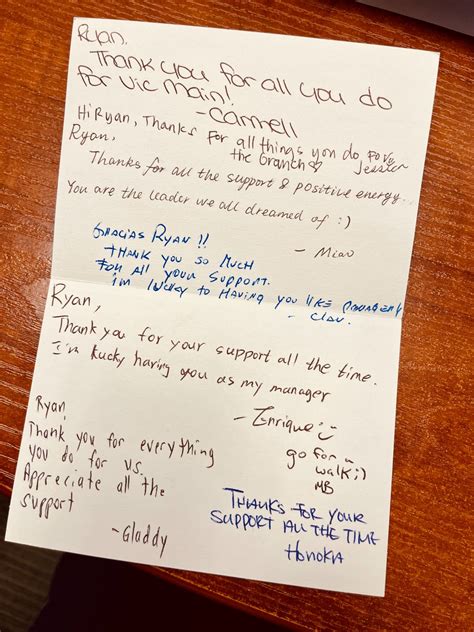 Ryan.
Thank you for all you do
for Vic Main!
- Carmell
Hi Ryan, Thanks for all things you do for
the branch
Jessica
Ryan,
Thanks for all the support & positive energy.
You are the leader we all dreamed of :)
- Miao
Gracias Ryan!!
Thank you so much
for all your support.
I'm lucky to having you like
- Clau.
Ryan,
Thank you for your support all the time.
I'm Lucky having you as my manager
- Enrique
go for a
walk ;)
MB
Ryan,
Thank you for everything
you do for us.
Appreciate all the
support
- Gladdy
Thanks for your
support all the time
Honoka